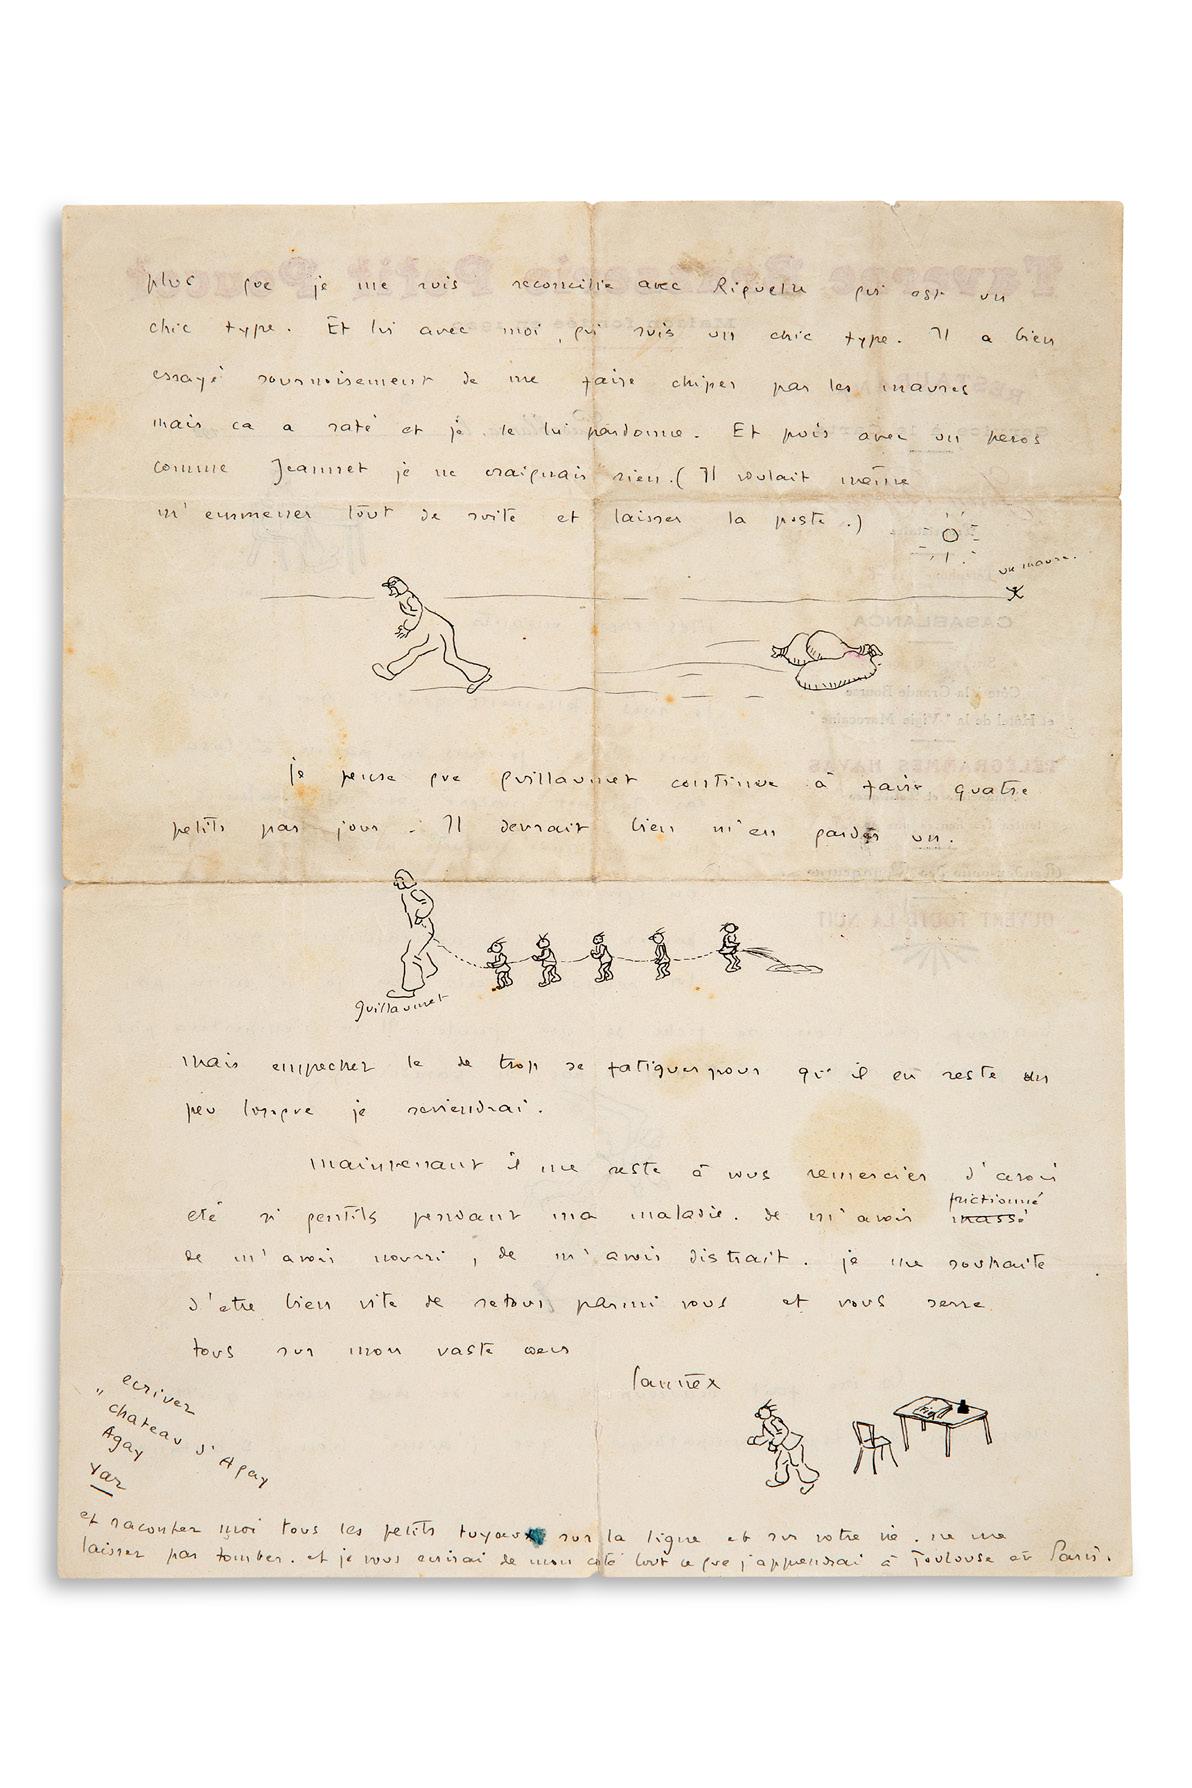 plus que je me suis reconcilié avec Riguelle qui est un
chic type. Et lui avec moi, qui suis un chic type. Il a bien
essayé sournoisement de me faire chiper par les maures
mais ca a raté et je le lui pardonne. Et puis avec un heros
comme Jeannet je ne craignais rien. (Il voulait même
m'emmener tout de suite et laisser la poste.)
un maure.
je pense que guillaumet continue à faire quatre
petits par jour. Il devrait bien m'en garder un.
guillaumet
mais empecher le de trop se fatiguer pour qu'il en reste un
peu lorsque je reviendrai.
maintenant il me reste à vous remercier d'avoir
frictionné
eté si gentils pendant ma maladie. de m'avoir massé
de m'avoir nourri, de m'avoir distrait. je me souhaite
d'etre bien vite de retour parmi vous et vous serre
tous sur mon vaste cœur
ecrivez
" chateau d'Agay
Agay
Var
et raconter moi tous les petits tuyaux sur la ligne et sur votre vie. ne me
laisser pas tomber. et je vous ecrirai de mon coté tout ce que j'apprendrai à Toulouse et Paris.
Taverne Brasserie Petit Poucet
Maison fondée en
RESTAURANT
CASABLANCA
Côté de la Grande Bourse
et Hôtel de la "Vigie Marocaine"
TÉLÉGRAMMES HAVAS
OUVERT TOUTE LA NUIT